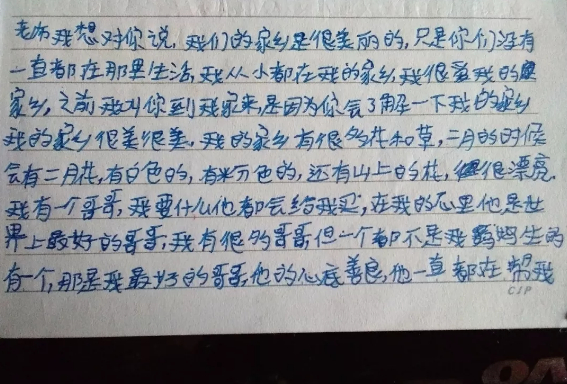 老师我想对你说,我们的家乡是很美丽的,只是你们没有
一直都在那里生活,我从小都在我的家乡,我很爱我的
家乡,之前我叫你到我家来,是因为你会了解一下我的家乡
我的家乡很美很美,我的家乡有很多花和草,二月的时候
会有二月花,有白色的,有粉色的,还有山上的花,很漂亮.
我有一个哥哥,我要什么他都会给我买,在我的心里他是世
界上最好的哥哥,我有很多哥哥但一个都不是我妈妈生的
有一个,那是我最好的哥哥,他的心底善良,他一直都在帮我
CIP